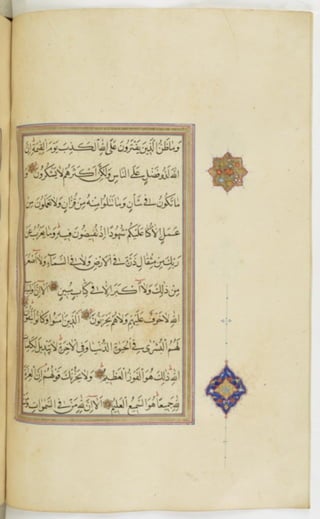 وَمَا ظَنُّ الَّذِينَ يَفْتَرُونَ عَلَى اللَّهِ الْكَذِبَ يَوْمَ الْقِيمَةِ إِنَّ
اللَّهَ لَذُو فَضْلٍ عَلَى النَّاسِ وَلَكِنَّ أَكْثَرَهُمْ لَا يَشْكُرُونَ وَ
مَا تَكُونُ فِي شَأْنٍ وَمَا تَتْلُوا مِنْهُ مِنْ قُرْآنٍ وَلَا تَعْمَلُونَ مِنْ
عَمَلٍ إِلَّا كُنَّا عَلَيْكُمْ شُهُودًا إِذْ تُفِيضُونَ فِيهِ وَمَا يَعْزُبُ عَنْ
رَبِّكَ مِنْ مِثْقَالِ ذَرَّةٍ فِي الْأَرْضِ وَلَا فِي السَّمَاءِ وَلَا أَصْغَرَ
مِنْ ذَلِكَ وَلَا أَكْبَرَ إِلَّا فِي كِتَابٍ مُبِينٍ أَلَا إِنَّ أَوْلِيَاءَ
اللَّهِ لَا خَوْفٌ عَلَيْهِمْ وَلَا هُمْ يَحْزَنُونَ الَّذِينَ آمَنُوا وَكَانُوا يَتَّقُونَ
لَهُمُ الْبُشْرَى فِي الْحَيوةِ الدُّنْيَا وَفِي الْآخِرَةِ لَا تَبْدِيلَ لِكَلِمَاتِ
اللَّهِ ذَلِكَ هُوَ الْفَوْزُ الْعَظِيمُ وَلَا يَحْزُنْكَ قَوْلُهُمْ إِنَّ الْعِزَّةَ
لِلَّهِ جَمِيعًا هُوَ السَّمِيعُ الْعَلِيمُ أَلَا إِنَّ لِلَّهِ مَنْ فِي السَّمَوَاتِ وَمَنْ